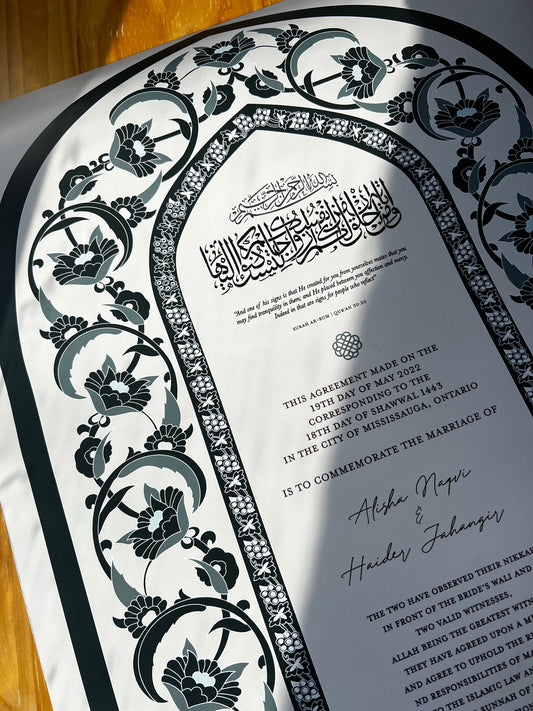 بسم الله الرحمن الرحيم
ومن آياته أن خلق لكم من أنفسكم أزواجا لتسكنوا إليها
"And one of his signs is that He created for you from yourselves mates that you
may find tranquility in them; and He placed between you affection and mercy.
Indeed in that are signs for people who reflect"
SURAH AR-RUM | QUR'AN 30:20
THIS AGREEMENT MADE ON THE
19TH DAY OF MAY 2022
CORRESPONDING TO THE
18TH DAY OF SHAWWAL 1443
IN THE CITY OF MISSISSAUGA, ONTARIO
IS TO COMMEMORATE THE MARRIAGE OF
Alisha Naqvi
&
Haider Jahangir
THE TWO HAVE OBSERVED THEIR NIKKA
IN FRONT OF THE BRIDE'S WALI AND
TWO VALID WITNESSES,
ALLAH BEING THE GREATEST WITN
THEY HAVE AGREED UPON A M
AND AGREE TO UPHOLD THE RI
ND RESPONSIBILITIES OF MA
TO THE ISLAMIC LAW AN
SUNNAH OF